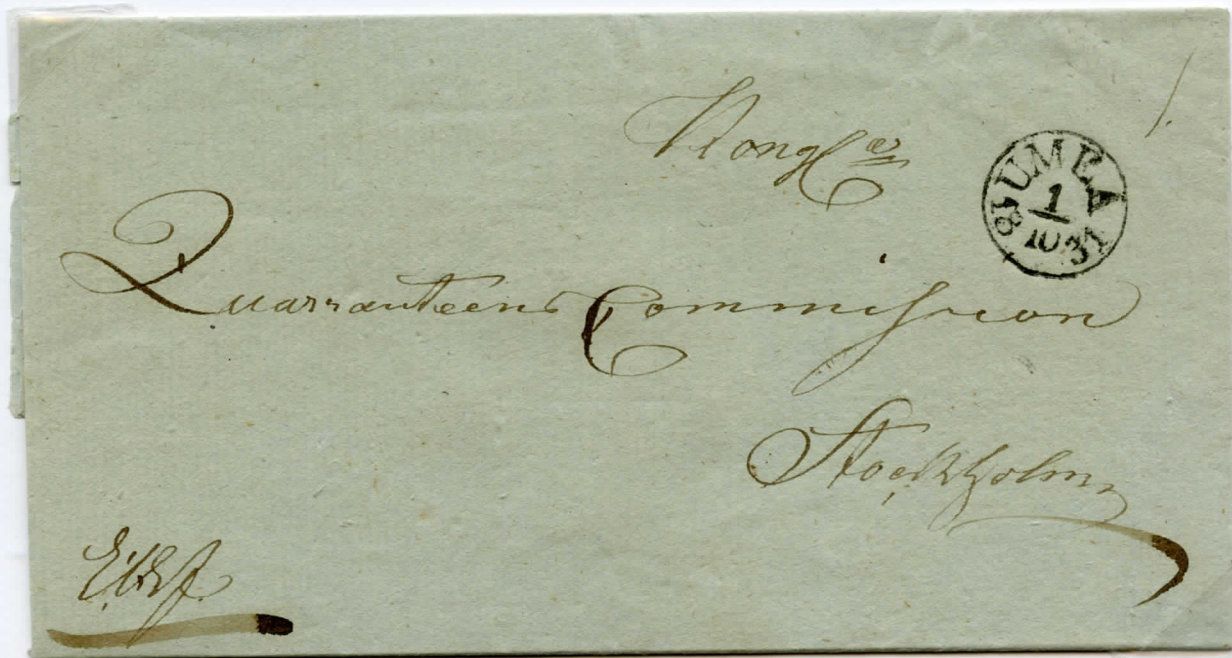 Kongl.
UMEA
1
10
1831
Quarranteens Commission
Stockholm